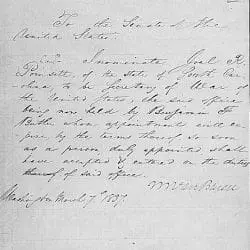 To the Senate of the
United States.
I nominate Joel R.
Poinsett, of the state of South Car-
olina, to be Secretary of War of
the United States, the said office
being now held by Benjamin F.
Butler whose appointment will ex-
pire by the terms thereof so soon
as a person duly appointed shall
have accepted & entered on the duties
thereof of said office.
M Van Buren
Washington March 7th 1837.